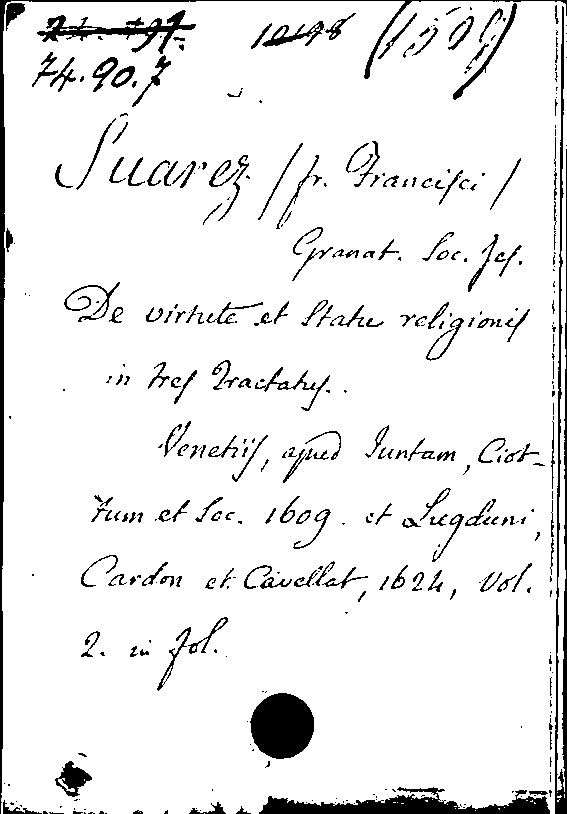 74.90.7
Suarez / fr. Francisci /
Granat. Soc. Jes.
De virtute et Statu religionis
in tres Tractatus.
Venetiis, apud Juntam, Ciot-
tum et Soc. 1609. et Lugduni,
Cardon et Cavellat, 1624, Vol.
2. in fol.